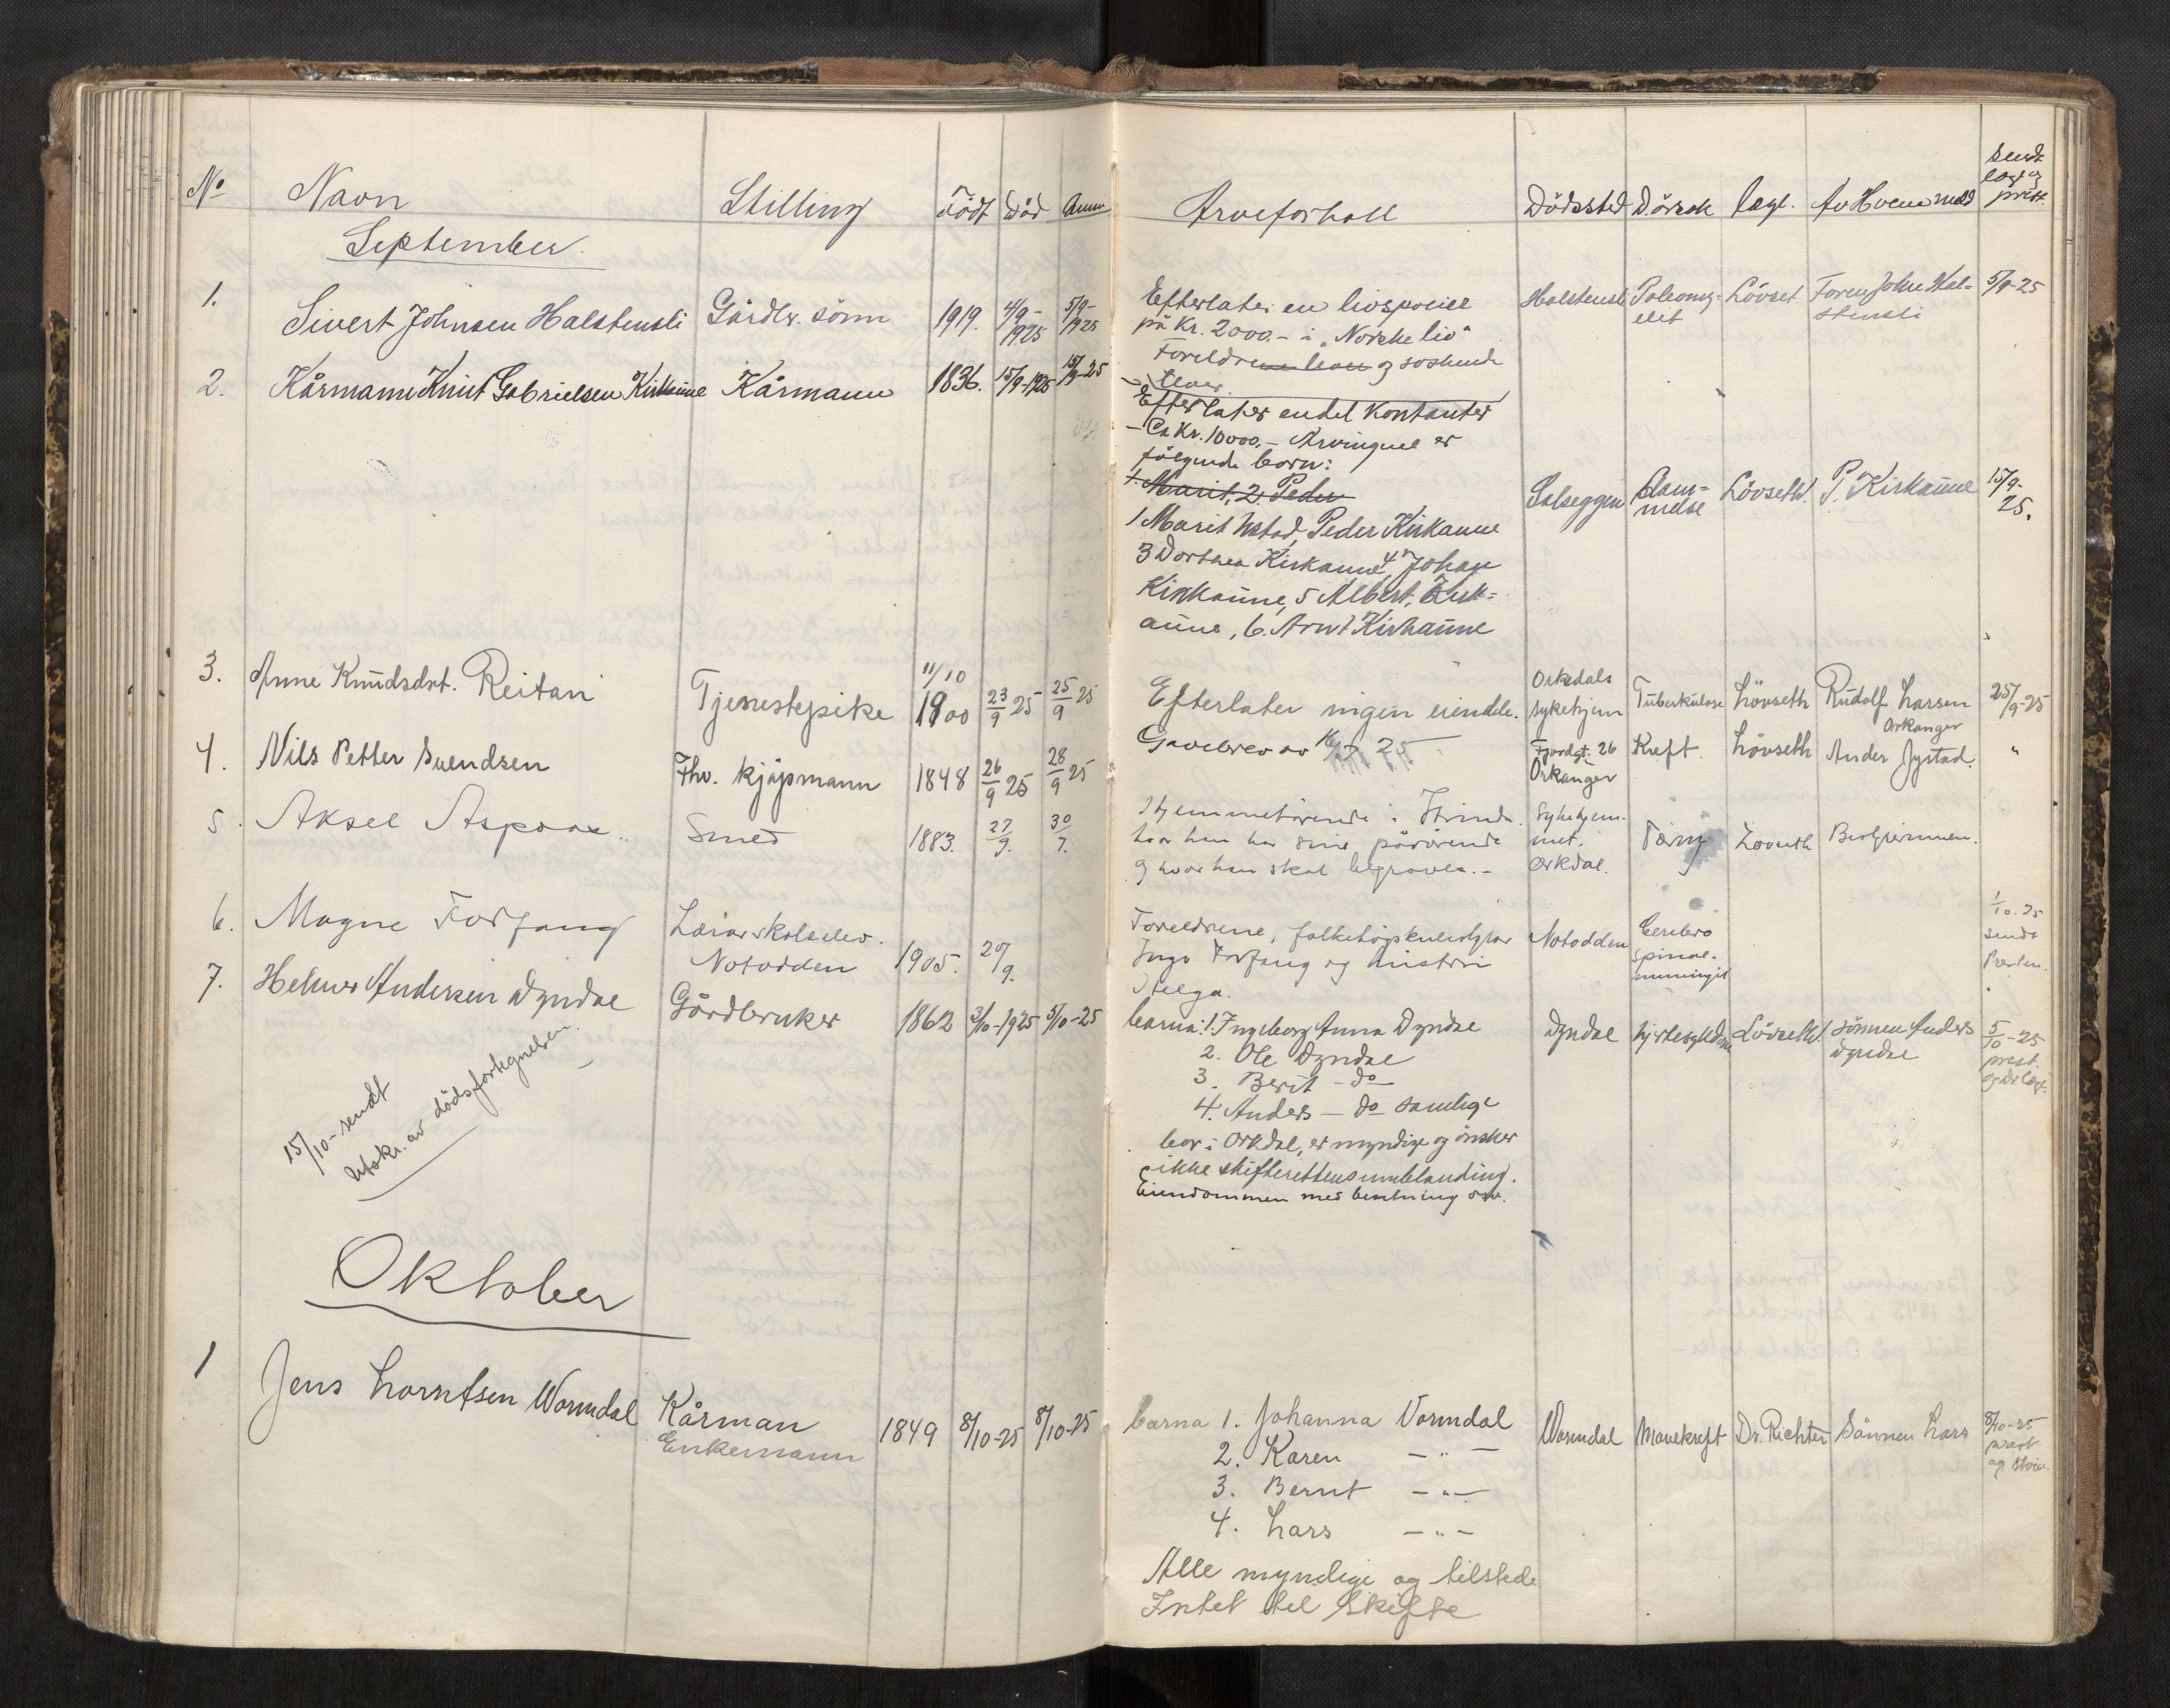 No Navn Stilling Födt Död Anm Arveforhold Dödssted D. årsak Læge. Av Hvem meld sendt læge og prest.
September
1. Sivert Johnsen Halstensli Gårdbr. sönn 1919. 4/9-1925 5/9-1925
Efterlater en livspolice
på Kr. 2000.- i "Norske liv"
Foreldrene lever og soskende
lever
Halstensli Poliomyelit Lövset Faren John Halstensli 5/9-25
2. Kårmann Knut Gabrielsen Kirkaune Kårmann 1836. 15/9-1925 15/9-25
Efterlater endel Kontanter
- Ca Kr. 10000.- Arvingene er
fölgende born:
1. Marit, 2, Peder
1 Marit Ustad, Peder Kirkaune
3 Dorthea Kirkaune, 4 Johan
Kirkaune, 5 Albert, Kirk=
aune, 6. Arnt Kirkaune
Solseggen Slammelse Lövseth. P. Kirkaune 15/9-25.
3. Anne Knudsdrt. Reitan Tjenestepike 11/10 1900 23/9 25 25/9 25
Efterlater ingen eiendele.
Orkedals sykehjem Tuberkulose Lövseth Rudolf Larsen Orkanger 25/9-25
4. Nils Petter Svendsen Fhv. kjöpmann 1848 26/9 25 28/9 25
Gavebrev av 25
Fjordgt. 26 Orkanger Kreft. Lövseth Ander Jystad. "
5. Aksel Aspaas. Smed 1883. 27/9. 30/9.
Hjemmehörende i Strinda.
hvor han har sine pårörende
og hvor han skal begraves. -
Sykehjemmet. Orkdal. Lövseth
6. Magne Forfang Lærarskoleelev. Notodden 1905. 20/9.
Foreldrene, folkehögskulestyrar
Inge Forfang og hustru
Helga.
Notodden Cerebro spinal-meningit 1/10.25 sendt Presten.
7. Helmer Andersen Dyndal Gårdbruker 1862 3/10-1925 5/10-25
barna: 1. Ingeborg Anna Dyndal
2. Ole Dyndal
3. Berit - do -
4. Anders - do samtlige
bor i Orkdal, er myndige og önsker
ikke skifterettens innblanding.
Eiendommen med besetning osv.
Dyndal hjertesykdom Lövseth. Sönnen Anders Dyndal 5/10-25 prest og Dr. Læge.
15/10- sendt
Utskr. av dödsfortegnelsen.
Oktober
1 Jens Larntsen Wormdal Kårman Enkemann 1849 8/10-25 8/10-25
barna 1. Johanna Vormdal
2. Karen - " -
3. Bernt - " -
4. Lars - " -
Alle myndige og tilstede
Intet til Skifte
Wormdal Mavekreft Dr. Richter Sönnen Lars 8/10-25 prest og